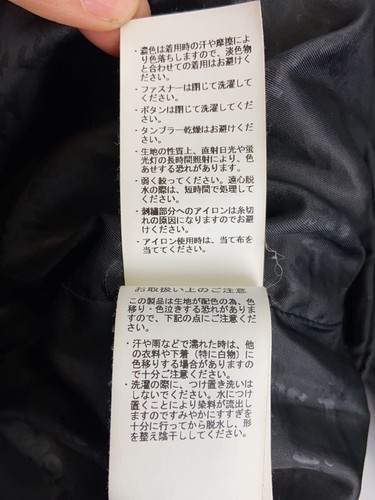 ・濃色は着用時の汗や摩擦によ
り色落ちしますので、淡色物
と合わせての着用はお避けく
ださい。
・ファスナーは閉じて洗濯して
ください。
・ボタンは閉じて洗濯してくだ
さい。
・タンブラー乾燥はお避けくだ
さい。
・生地の性質上、直射日光や蛍
光灯の長時間照射により、色
あせする恐れがあります。
・弱く絞ってください。遠心脱
水の際は、短時間で処理して
ください。
・刺繍部分へのアイロンは糸切
れの原因になりますのでお避
けください。
・アイロン使用時は、当て布を
当ててください。
お取扱い上のご注意
この製品は生地が配色の為、色
移り・色泣きする恐れがありま
すので、下記の点にご注意くだ
さい。
・汗や雨などで濡れた時は、他
の衣料や下着（特に白物）に
色移りする場合がありますの
で十分ご注意ください。
・洗濯の際に、つけ置き洗いは
しないでください。水につけ
置くことにより染料が流出し
ますのですみやかにすすぎを
十分に行ってから脱水し、形
を整え陰干ししてください。